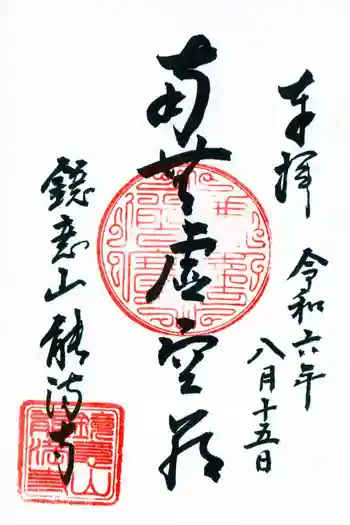 奉拝
令和六年
八月十五日
南無虚空蔵
鏡意山
能満寺